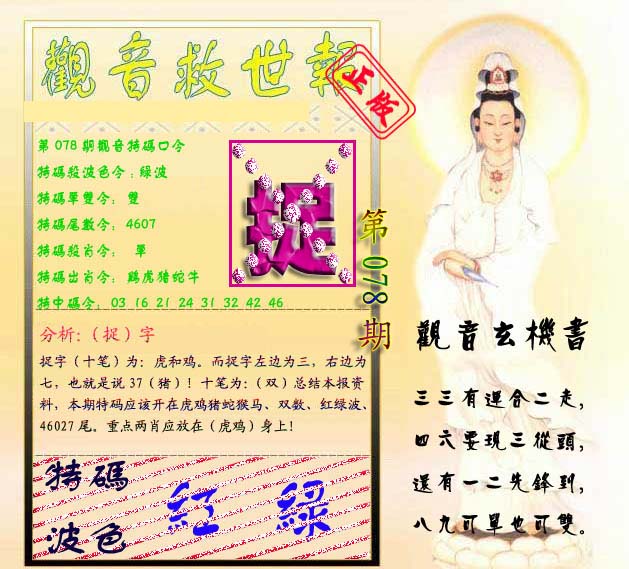 觀音救世報
正版
第078期觀音特碼口令
特碼殺波色令：綠波
特碼單雙令： 雙
特碼尾數令： 4607
特碼殺肖令： 單
特碼出肖令： 鷄虎猪蛇牛
特中碼令： 03 16 21 24 31 32 42 46
捉
第078期
分析：（捉）字
捉字（十笔）为：虎和鸡。而捉字左边为三，右边为
七，也就是说37（猪）！十笔为：（双）总结本报资
料，本期特码应该开在虎鸡猪蛇猴马、双数、红绿波、
46027尾。重点两肖应放在（虎鸡）身上！
特碼
波色
紅 綠
觀音玄機書
三三有運合二走，
四六要現三從頭，
還有一二先鋒到，
八九可單也可雙。